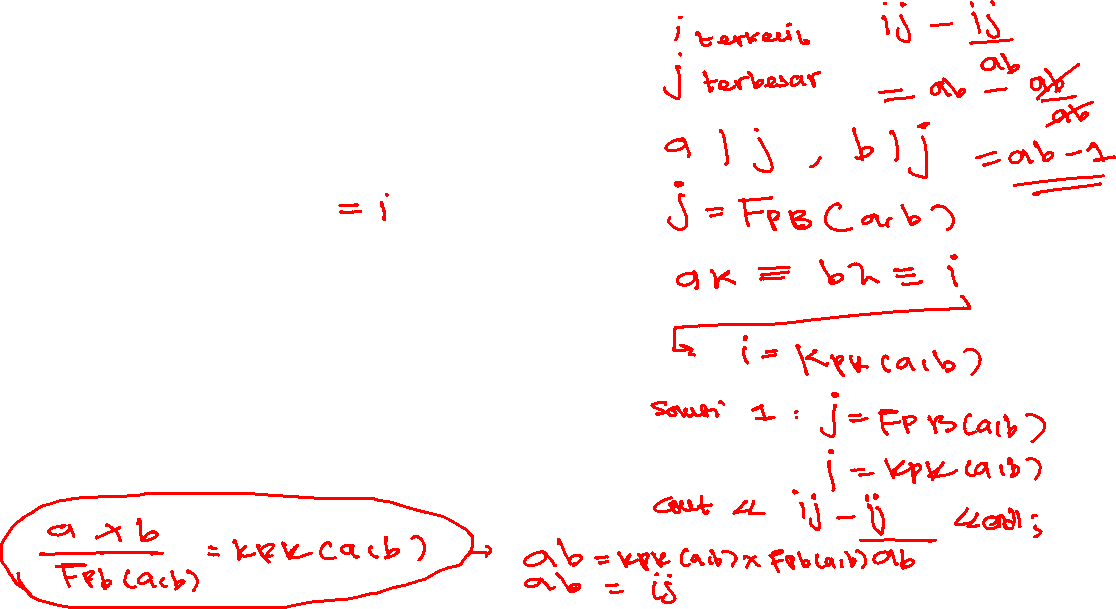 i terkecil
j terbesar
ij - ij/ab
= ab - ab/ab
= ab - 1
a | j , b | j
j = FPB(a,b)
= i
ak ≡ bh ≡ i
↳ i = KPK(a,b)
Solusi 1 : j = FPB(a,b)
i = KPK(a,b)
cout << ij - ij/ab << endl;
a × b / Fpb(a,b) = KPK(a,b) →
ab = KPK(a,b) × Fpb(a,b)
ab = ij